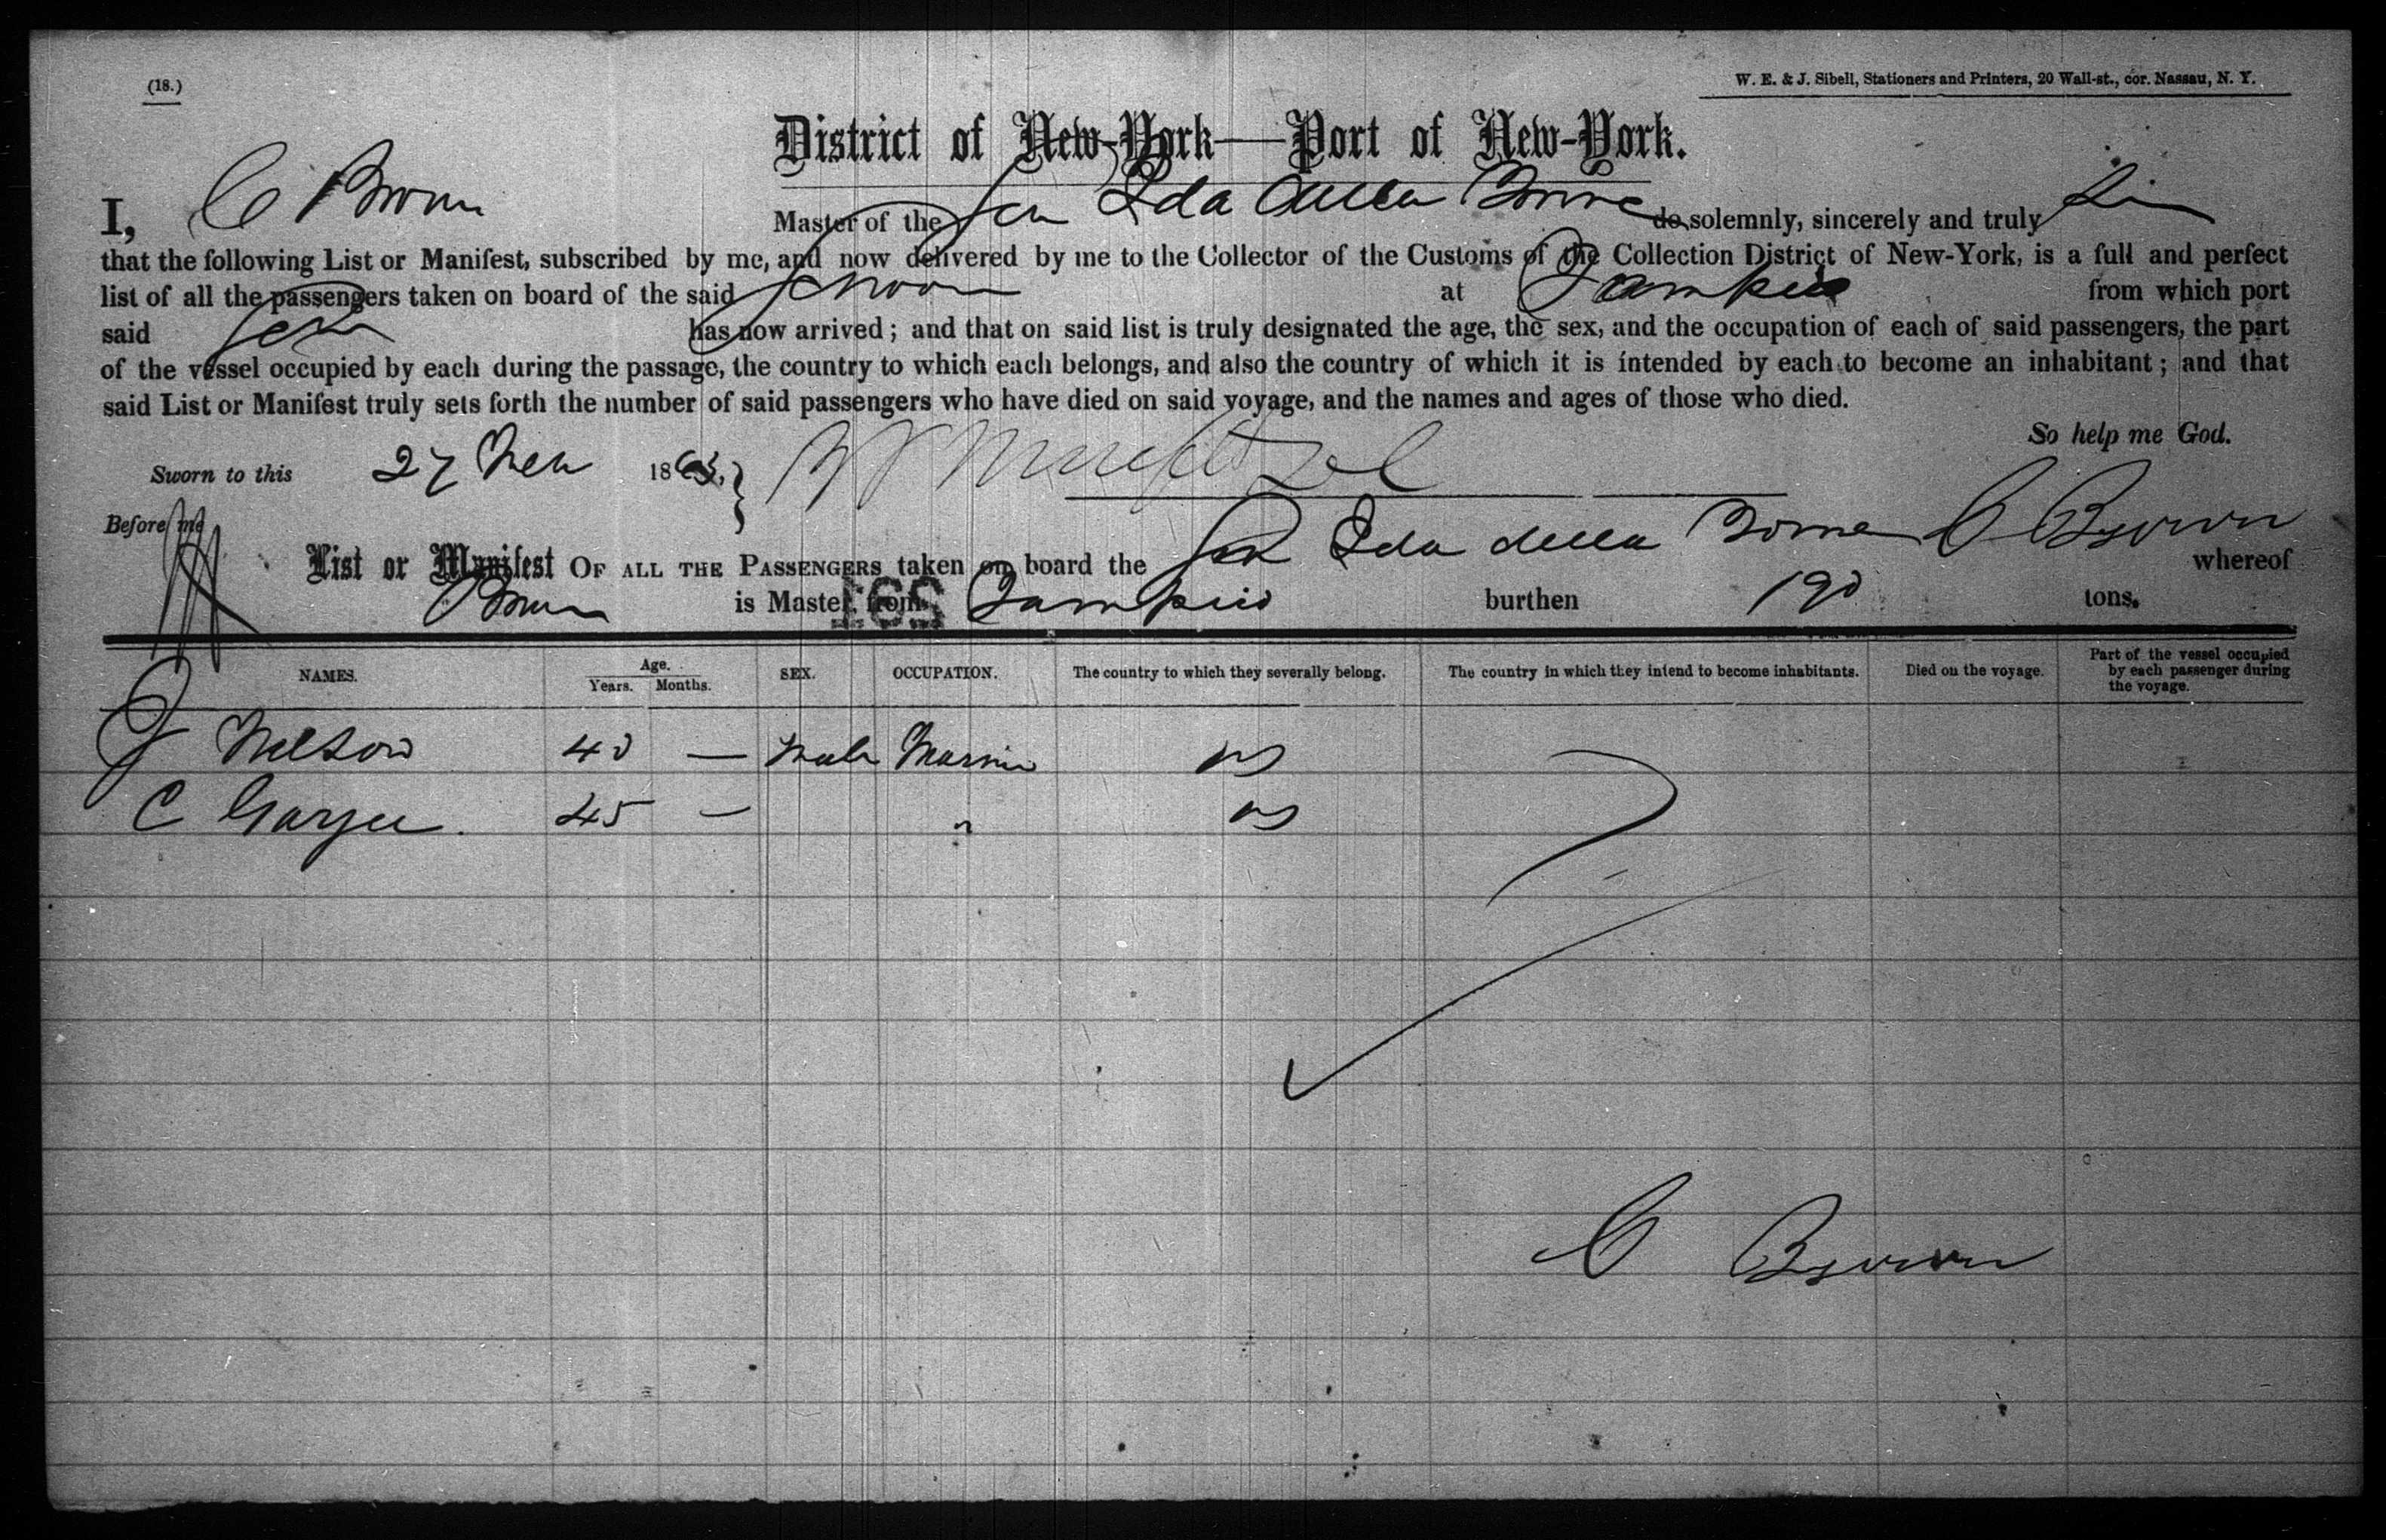 (18.)
W. E. & J. Sibell, Stationers and Printers, 20 Wall-st., cor. Nassau, N. Y.
District of New-York—Port of New-York.
I, C Brown Master of the Sch Ida della Torre do solemnly, sincerely and truly
that the following List or Manifest, subscribed by me, and now delivered by me to the Collector of the Customs of the Collection District of New-York, is a full and perfect
list of all the passengers taken on board of the said Schoon at Tampico from which port
said Sch has now arrived; and that on said list is truly designated the age, the sex, and the occupation of each of said passengers, the part
of the vessel occupied by each during the passage, the country to which each belongs, and also the country of which it is intended by each to become an inhabitant; and that
said List or Manifest truly sets forth the number of said passengers who have died on said voyage, and the names and ages of those who died.
So help me God.
Sworn to this 27 186
Before me C Brown
List or Manifest OF ALL THE PASSENGERS taken on board the Sch Ida della Torre whereof
Brown is Master, from Tampico burthen 190 tons.
NAMES. Age. Years. Months. SEX. OCCUPATION. The country to which they severally belong. The country in which they intend to become inhabitants. Died on the voyage. Part of the vessel occupied by each passenger during the voyage.
J Nelson 40 — Male Marine US
C 45 — " US
C Brown